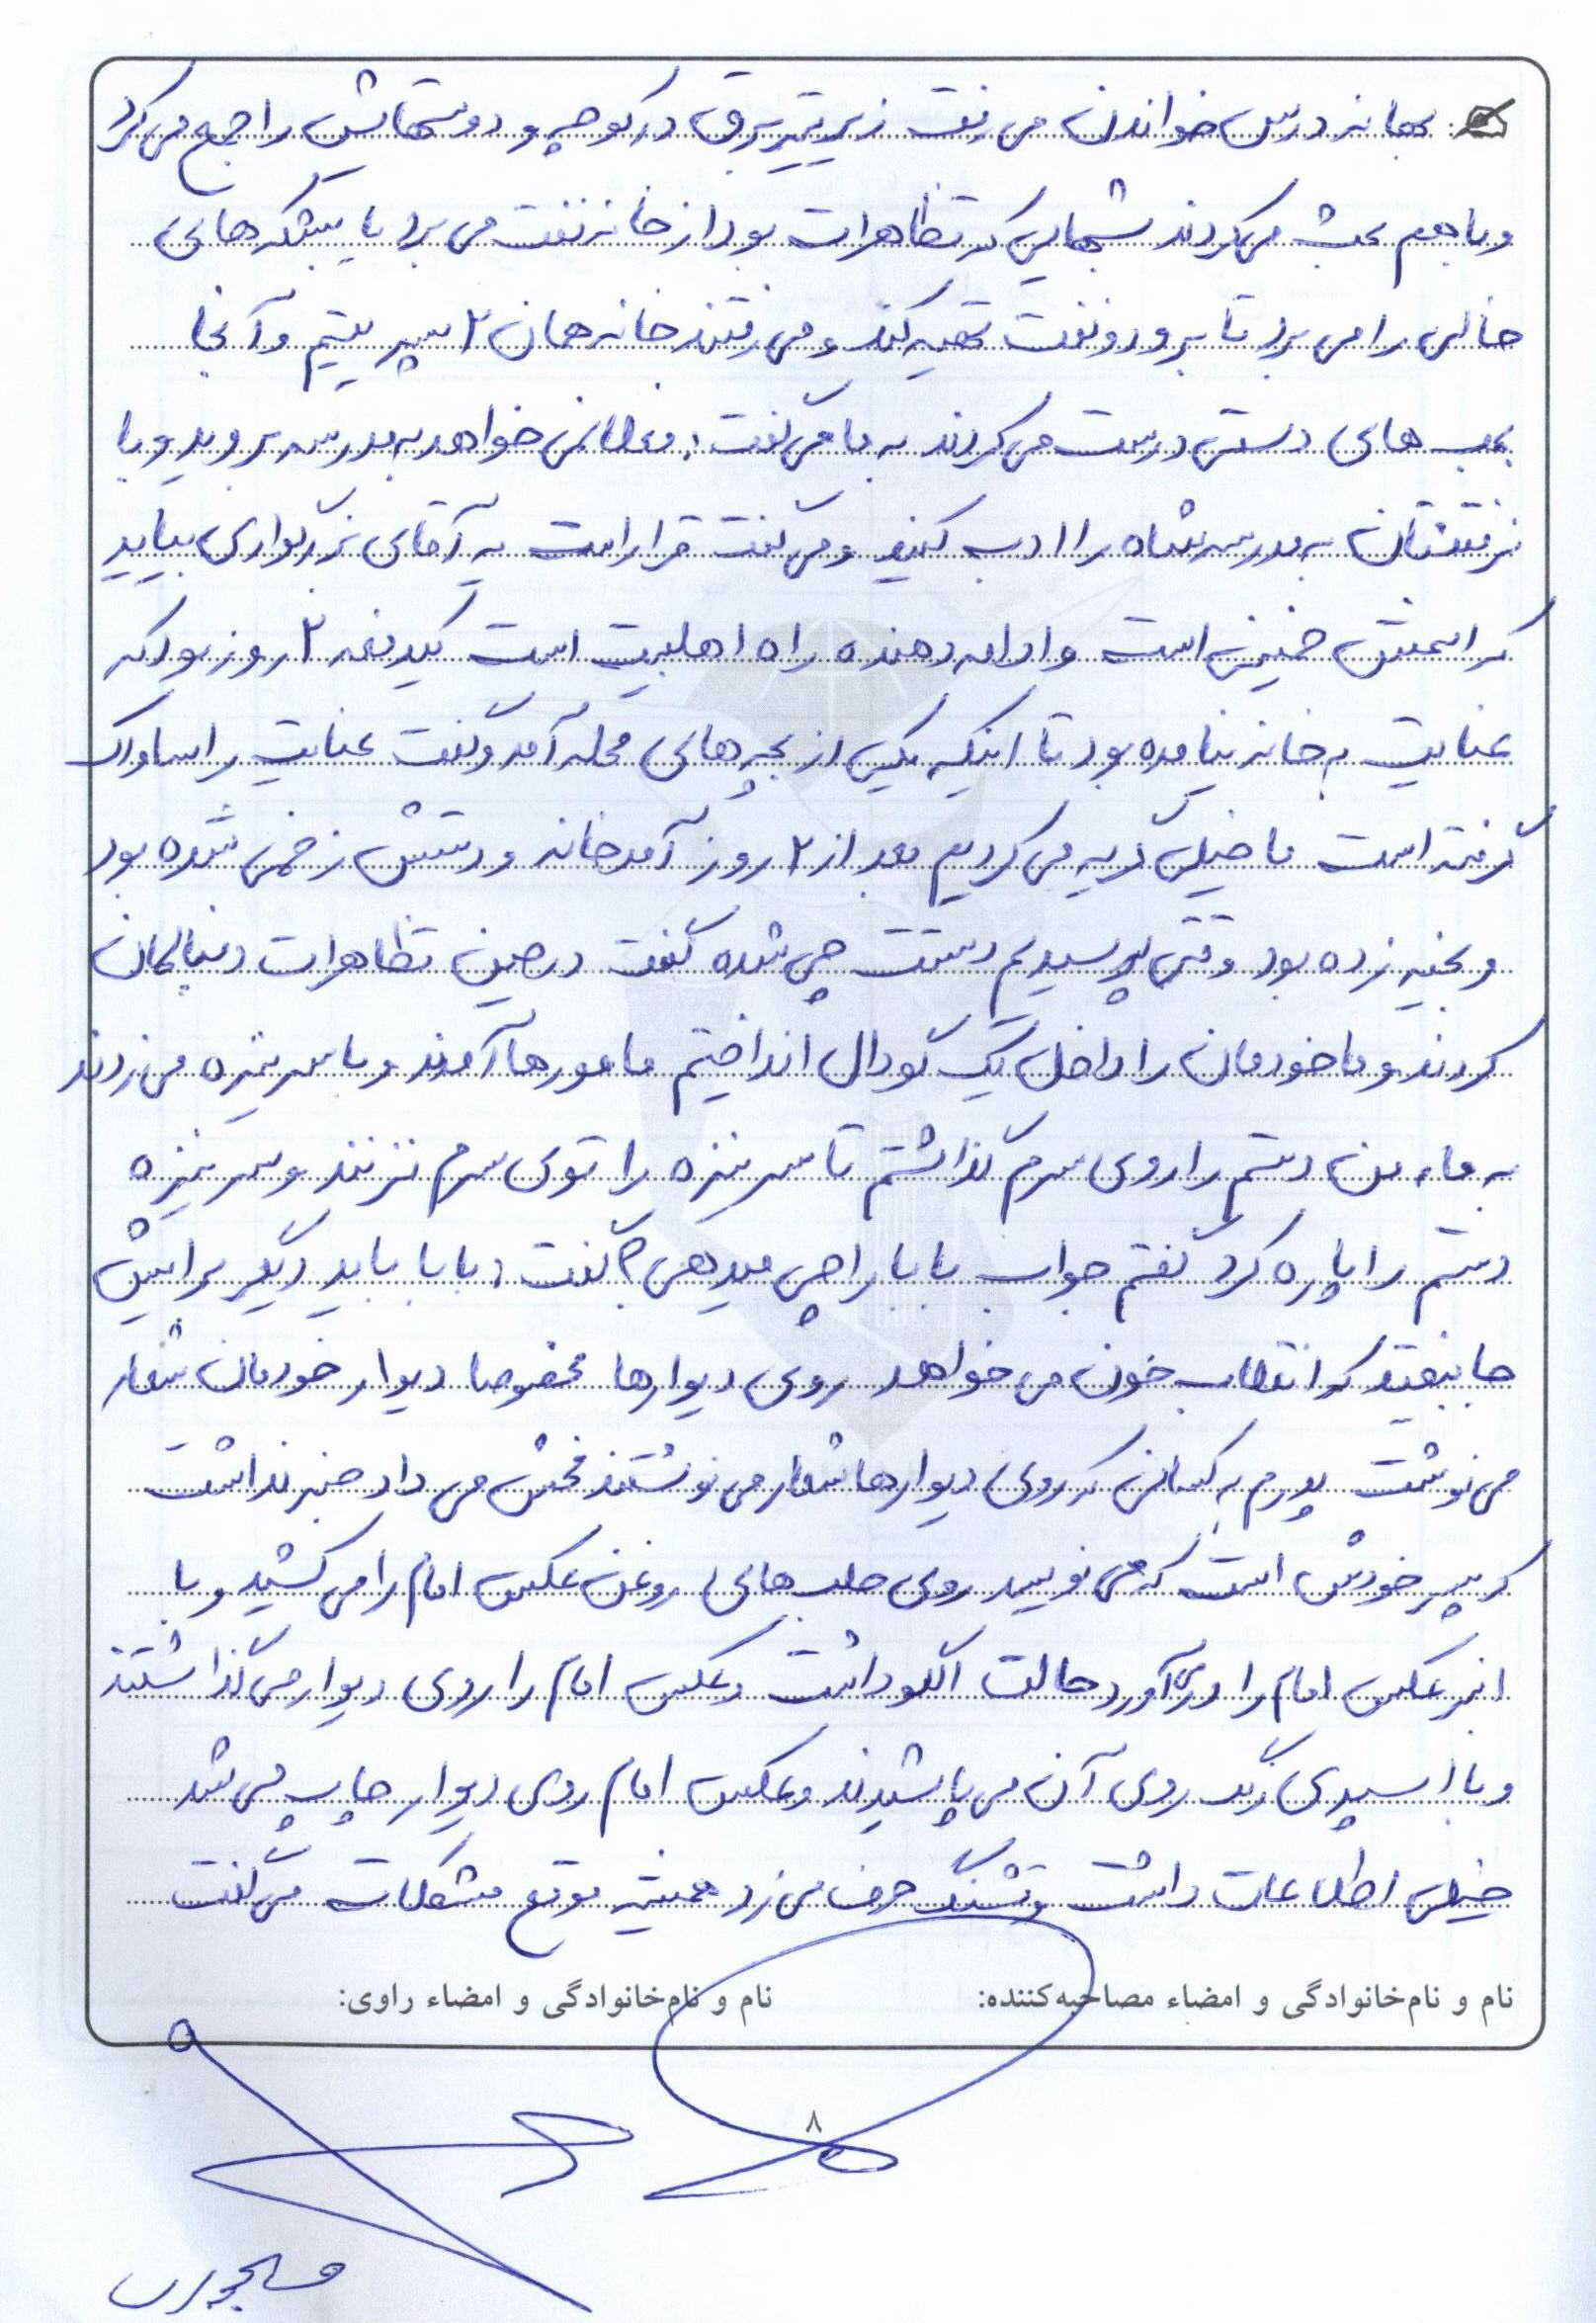 بهانه درس خواندن می رفت زیر تیر برق در کوچه و دوستهایش را جمع می کرد
و با هم بحث می کردند شبهایی که تظاهرات بود از خانه نفت می برد یا بشکه های
خالی را می برد تا برود و نفت تهیه کند و می رفتند خانه همان ۲ پسر یتیم و آنجا
بمب های دستی درست می کردند به ما می گفت: فعلا نمی خواهد به مدرسه بروید و با
نرفتنتان به مدرسه شاه را ادب کنید و می گفت قرار است یه آقای بزرگواری بیاید
که اسمش خمینی است و ادامه دهنده راه اهلبیت است یکدفعه ۲ روز بود که
عنایت به خانه نیامده بود تا اینکه یکی از بچه های محله آمد و گفت عنایت را ساواک
گرفته است ما خیلی گریه می کردیم بعد از ۲ روز آمد خانه و دستش زخمی شده بود
و بخیه زده بود وقتی پرسیدیم دستت چی شده گفت در حین تظاهرات دنبالمان
کردند و ما خودمان را داخل یک گودال انداختیم مامورها آمدند و با سرنیزه می زدند
به ما، من دستم را روی سرم گذاشتم تا سرنیزه را توی سرم نزنند و سرنیزه
دستم را پاره کرد گفتم جواب بابا را چی میدهی؟ گفت: بابا باید دیگر برایش
جا بیفتد که انقلاب خون می خواهد روی دیوارها مخصوصا دیوار خودمان شعار
می نوشت پدرم به کسانی که روی دیوارها شعار می نوشتند فحش می داد خبر نداشت
که پسر خودش است که می نویسد روی حلب های روغن عکس امام را می کشید و با
انبر عکس امام را در می آورد حالت الگو داشت و عکس امام را روی دیوار می گذاشتند
و با اسپری رنگ روی آن می پاشیدند و عکس امام روی دیوار چاپ می شد
خیلی اطلاعات داشت و قشنگ حرف می زد همیشه موقع مشکلات می گفت
نام و نام‌خانوادگی و امضاء مصاحبه‌کننده: نام و نام‌خانوادگی و امضاء راوی:
۸